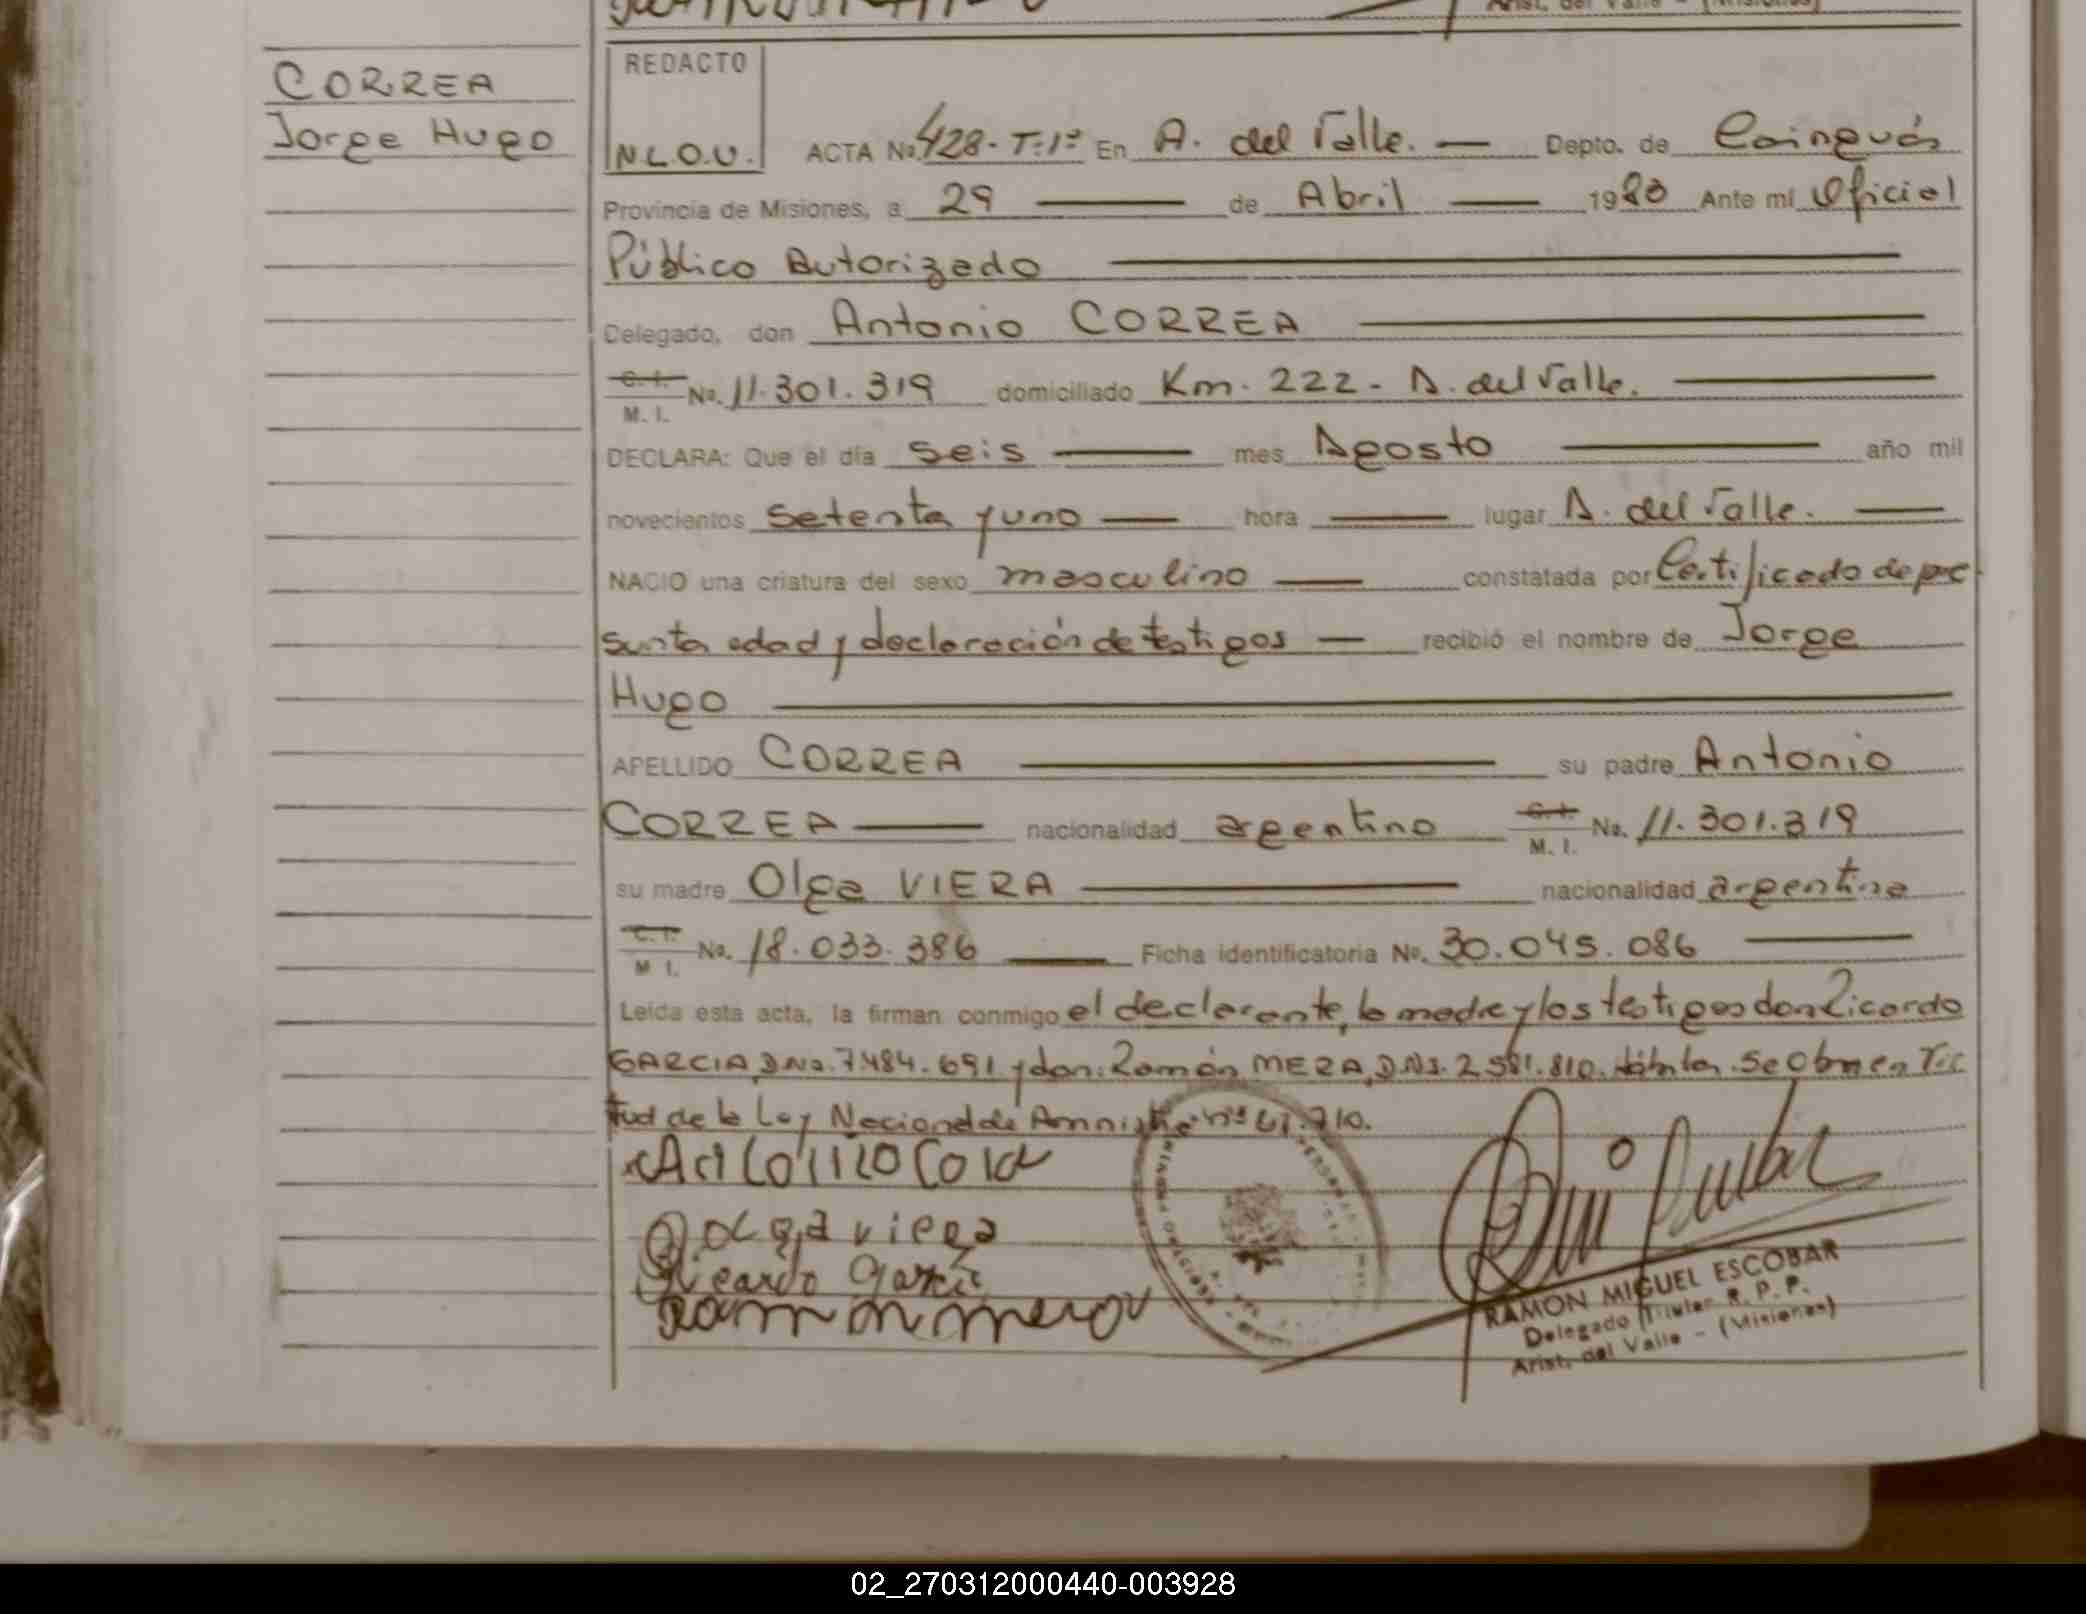 Arist. del Valle - (Misiones)
CORREA
Jorge Hugo
REDACTO
N.L.O.V.
ACTA No. 428-T:1º En A. del Valle. Depto. de Cainguás
Provincia de Misiones, a 29 de Abril 1980 Ante mí Oficial
Público Autorizado
Delegado, don Antonio CORREA
C. I. M. I. No. 11.301.319 domiciliado Km. 222 - A. del Valle.
DECLARA: Que el día seis mes Agosto año mil
novecientos setenta y uno hora lugar A. del Valle.
NACIO una criatura del sexo masculino constatada por Certificado de pre
sunta edad y declaración de testigos recibió el nombre de Jorge
Hugo
APELLIDO CORREA su padre Antonio
CORREA nacionalidad argentino C. I. M. I. No. 11.301.319
su madre Olga VIERA nacionalidad argentina
C. I. M. I. No. 18.033.386 Ficha identificatoria No. 30.045.086
Leída esta acta, la firman conmigo el declarante, la madre y los testigos don Ricardo
GARCIA, D.No. 7.484.691 y don Ramón MERA, D.No. 2.581.810.
tud de la Ley Nacional de Amnistía nº
Olga viera
Ricardo Garcia
Ramon mera
RAMON MIGUEL ESCOBAR
Delegado Titular R. P. P.
Arist. del Valle - (Misiones)
02_270312000440-003928